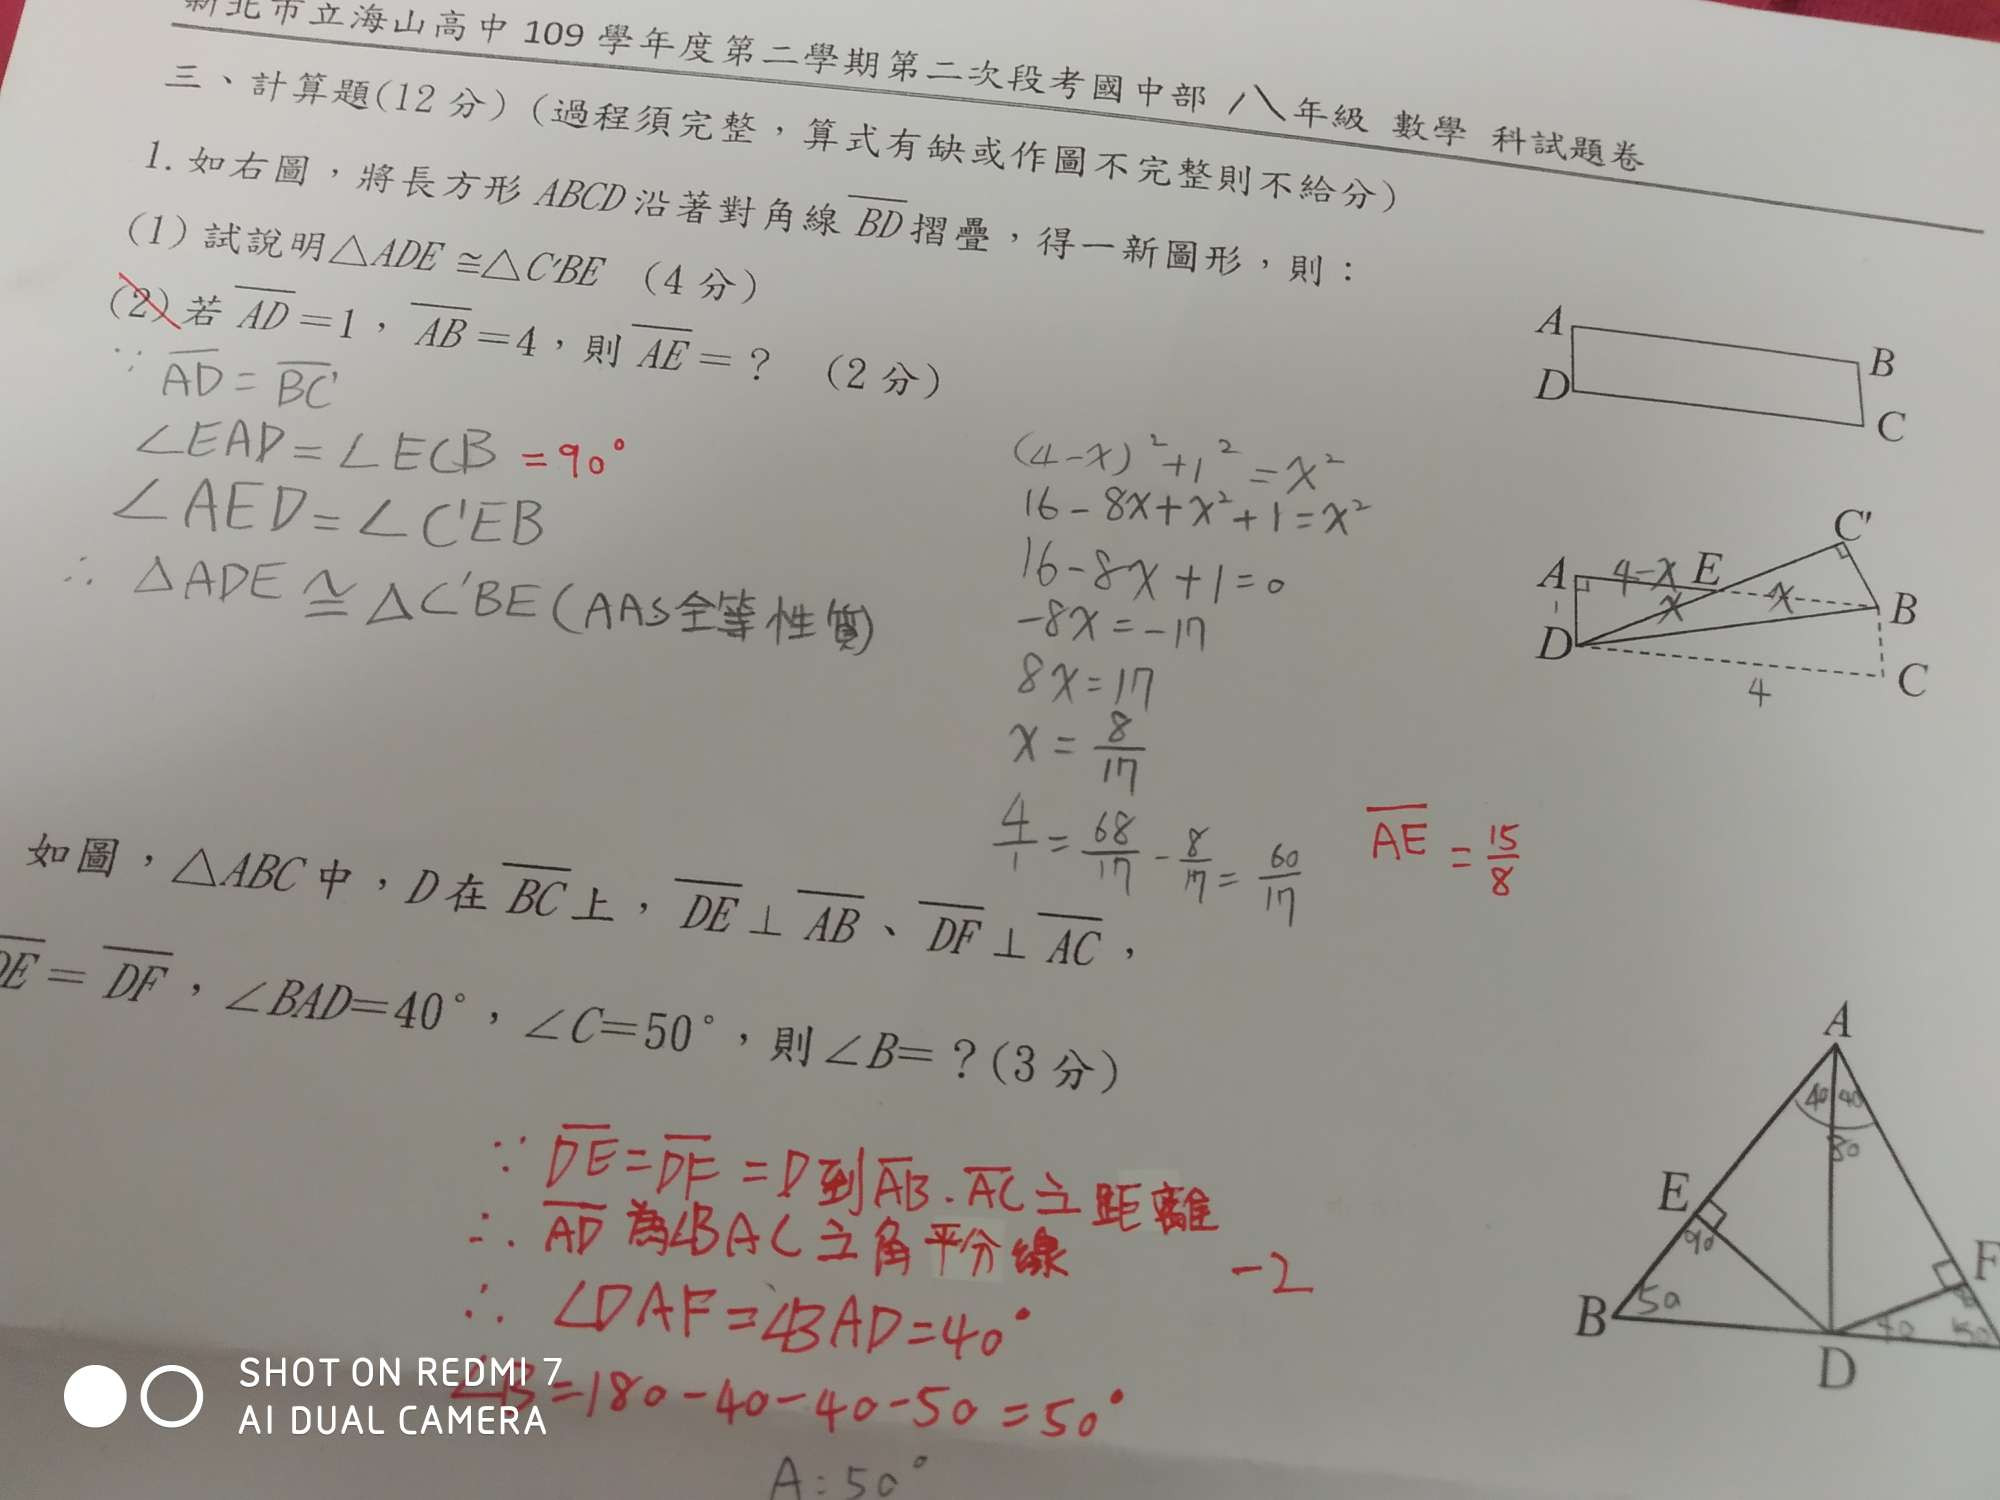 新北市立海山高中 109 學年度第二學期第二次段考國中部 八年級 數學 科試題卷
三、計算題(12 分)(過程須完整,算式有缺或作圖不完整則不給分)
1. 如右圖,將長方形 ABCD 沿著對角線 BD 摺疊,得一新圖形,則:
(1) 試說明△ADE ≅△C'BE (4 分)
(2) 若 AD =1, AB =4,則 AE = ? (2 分)
∵ AD = BC'
∠EAD = ∠ECB = 90°
∠AED = ∠C'EB
∴ △ADE ≅ △C'BE (AAS全等性質)
(4-x)² + 1² = x²
16 - 8x + x² + 1 = x²
16 - 8x + 1 = 0
-8x = -17
8x = 17
x = 8/17
4/1 = 68/17 - 8/17 = 60/17
AE = 15/8
A
B
D
C
C'
A 4-x E
x
x
B
D
C
4
如圖,△ABC 中,D 在 BC 上, DE ⊥ AB 、 DF ⊥ AC ,
DE = DF ,∠BAD=40°,∠C=50°,則∠B= ? (3 分)
∵ DE = DF = D到AB.AC之距離
∴ AD 為∠BAC之角平分線
-2
∴ ∠DAF = ∠BAD = 40°
∠B = 180 - 40 - 40 - 50 = 50°
A: 50°
A
40 40
80
E
90
F
B
50
40
50
D
SHOT ON REDMI 7
AI DUAL CAMERA